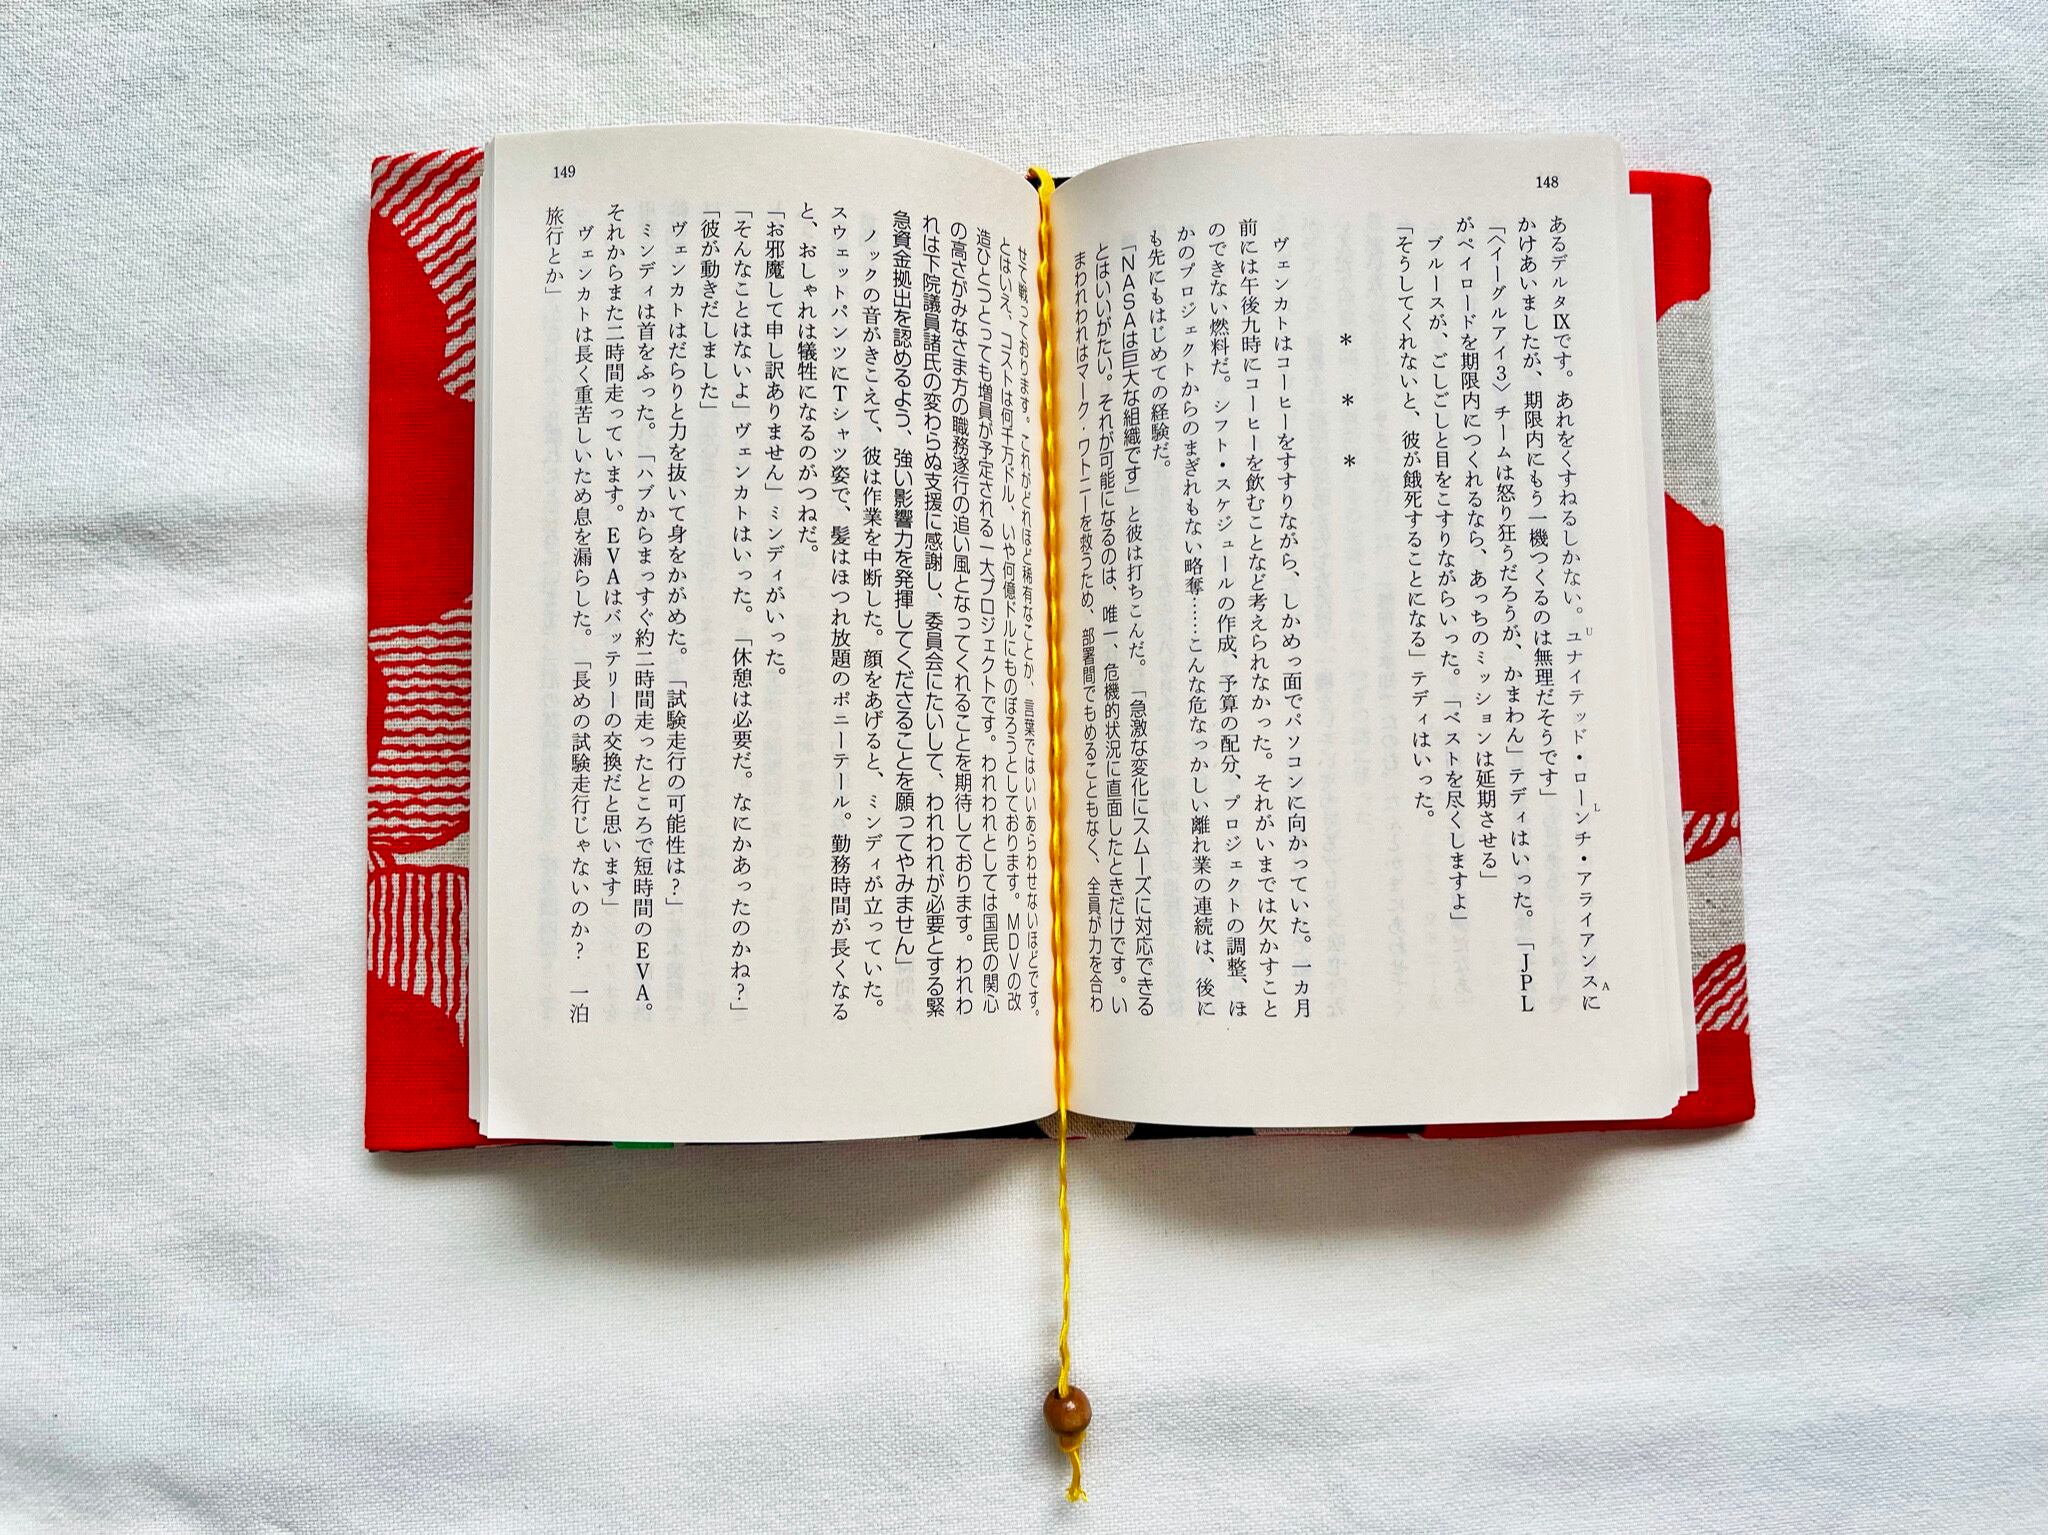 148
あるデルタⅨです。あれをくすねるしかない。ユナイテッド・ローンチ・アライアンスに
U L A
かけあいましたが、期限内にもう一機つくるのは無理だそうです」
「〈イーグルアイ3〉チームは怒り狂うだろうが、かまわん」テディはいった。「JPL
がペイロードを期限内につくれるなら、あっちのミッションは延期させる」
ブルースが、ごしごしと目をこすりながらいった。「ベストを尽くしますよ」
「そうしてくれないと、彼が餓死することになる」テディはいった。
* * *
ヴェンカトはコーヒーをすすりながら、しかめっ面でパソコンに向かっていた。一カ月
前には午後九時にコーヒーを飲むことなど考えられなかった。それがいまでは欠かすこと
のできない燃料だ。シフト・スケジュールの作成、予算の配分、プロジェクトの調整、ほ
かのプロジェクトからのまぎれもない略奪……こんな危なっかしい離れ業の連続は、後に
も先にもはじめての経験だ。
「NASAは巨大な組織です」と彼は打ちこんだ。「急激な変化にスムーズに対応できる
とはいいがたい。それが可能になるのは、唯一、危機的状況に直面したときだけです。い
まわれわれはマーク・ワトニーを救うため、部署間でもめることもなく、全員が力を合わ
149
せて戦っております。これがどれほど稀有なことか、言葉ではいいあらわせないほどです。
とはいえ、コストは何千万ドル、いや何億ドルにものぼろうとしております。MDVの改
造ひとつとっても増員が予定される一大プロジェクトです。われわれとしては国民の関心
の高さがみなさま方の職務遂行の追い風となってくれることを期待しております。われわ
れは下院議員諸氏の変わらぬ支援に感謝し、委員会にたいして、われわれが必要とする緊
急資金拠出を認めるよう、強い影響力を発揮してくださることを願ってやみません」
ノックの音がきこえて、彼は作業を中断した。顔をあげると、ミンディが立っていた。
スウェットパンツにTシャツ姿で、髪はほつれ放題のポニーテール。勤務時間が長くなる
と、おしゃれは犠牲になるのがつねだ。
「お邪魔して申し訳ありません」ミンディがいった。
「そんなことはないよ」ヴェンカトはいった。「休憩は必要だ。なにかあったのかね?」
「彼が動きだしました」
ヴェンカトはだらりと力を抜いて身をかがめた。「試験走行の可能性は?」
ミンディは首をふった。「ハブからまっすぐ約二時間走ったところで短時間のEVA。
それからまた二時間走っています。EVAはバッテリーの交換だと思います」
ヴェンカトは長く重苦しいため息を漏らした。「長めの試験走行じゃないのか? 一泊
旅行とか」